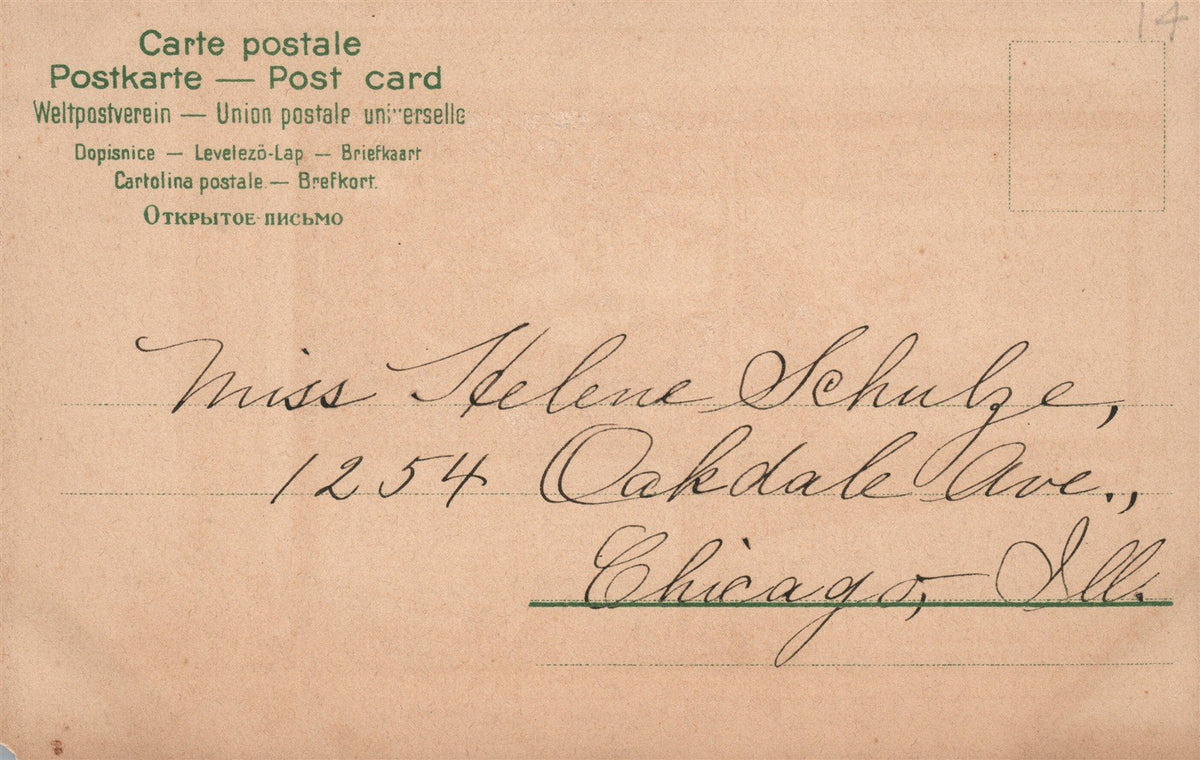 14
Carte postale
Postkarte — Post card
Weltpostverein — Union postale universelle
Dopisnice — Levelező-Lap — Briefkaart
Cartolina postale — Brefkort.
Открытое письмо
Miss Helene Schulze,
1254 Oakdale Ave.,
Chicago, Ill.